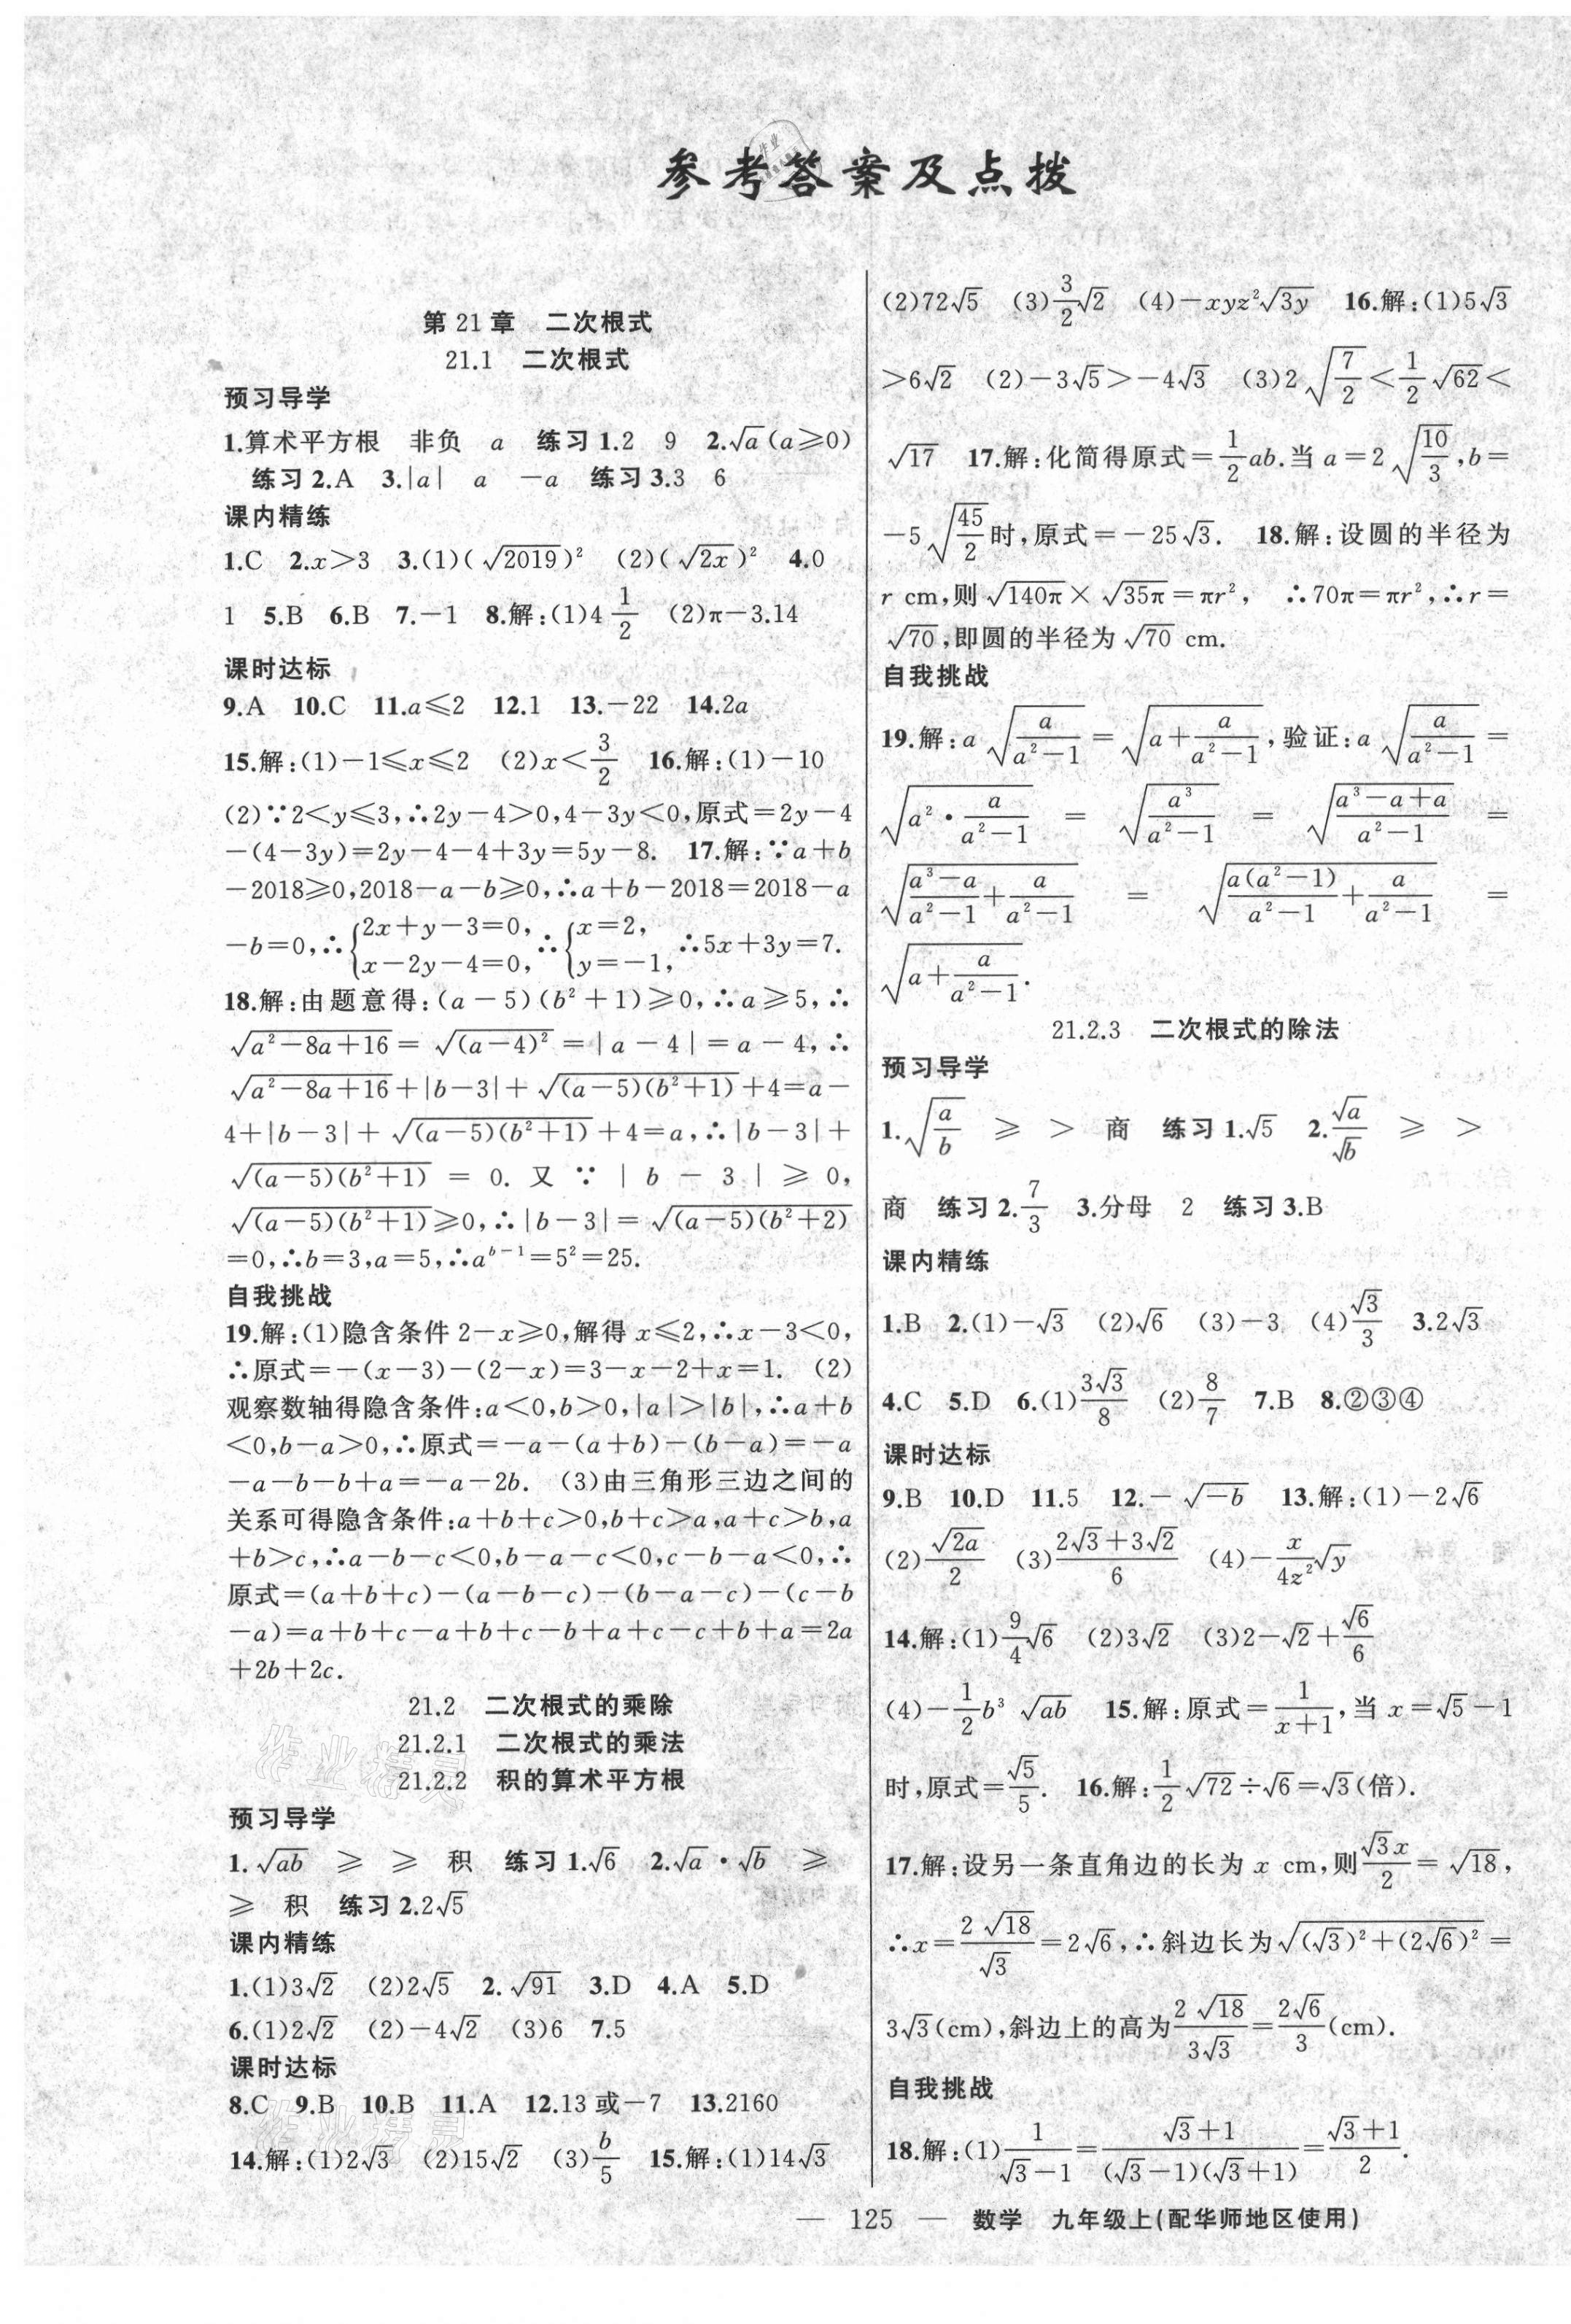 参考答案及点拨
第 21 章　二次根式
21.1　二次根式
预习导学
1.算术平方根　非负　a　练习 1.2　9　2.√a(a≥0)
练习 2.A　3.|a|　a　-a　练习 3.3　6
课内精练
1.C　2.x>3　3.(1)(√2019)²　(2)(√(2x))²　4.0
1　5.B　6.B　7.-1　8.解:(1)4 1/2　(2)π-3.14
课时达标
9.A　10.C　11.a≤2　12.1　13.-22　14.2a
15.解:(1)-1≤x≤2　(2)x<3/2　16.解:(1)-10
(2)∵2<y≤3,∴2y-4>0,4-3y<0,原式=2y-4
-(4-3y)=2y-4-4+3y=5y-8.　17.解:∵a+b
-2018≥0,2018-a-b≥0,∴a+b-2018=2018-a
-b=0,∴{2x+y-3=0, x-2y-4=0, ∴{x=2, y=-1, ∴5x+3y=7.
18.解:由题意得:(a-5)(b²+1)≥0,∴a≥5,∴
√(a²-8a+16)=√((a-4)²)=|a-4|=a-4,∴
√(a²-8a+16)+|b-3|+√((a-5)(b²+1))+4=a-
4+|b-3|+√((a-5)(b²+1))+4=a,∴|b-3|+
√((a-5)(b²+1))=0.又∵|b-3|≥0,
√((a-5)(b²+1))≥0,∴|b-3|=√((a-5)(b²+2))
=0,∴b=3,a=5,∴a^(b-1)=5²=25.
自我挑战
19.解:(1)隐含条件 2-x≥0,解得 x≤2,∴x-3<0,
∴原式=-(x-3)-(2-x)=3-x-2+x=1.　(2)
观察数轴得隐含条件:a<0,b>0,|a|>|b|,∴a+b
<0,b-a>0,∴原式=-a-(a+b)-(b-a)=-a
-a-b-b+a=-a-2b.　(3)由三角形三边之间的
关系可得隐含条件:a+b+c>0,b+c>a,a+c>b,a
+b>c,∴a-b-c<0,b-a-c<0,c-b-a<0,∴
原式=(a+b+c)-(a-b-c)-(b-a-c)-(c-b
-a)=a+b+c-a+b+c-b+a+c-c+b+a=2a
+2b+2c.
21.2　二次根式的乘除
21.2.1　二次根式的乘法
21.2.2　积的算术平方根
预习导学
1.√(ab)　≥　≥　积　练习 1.√6　2.√a·√b　≥
≥　积　练习 2.2√5
课内精练
1.(1)3√2　(2)2√5　2.√91　3.D　4.A　5.D
6.(1)2√2　(2)-4√2　(3)6　7.5
课时达标
8.C　9.B　10.B　11.A　12.13 或-7　13.2160
14.解:(1)2√3　(2)15√2　(3)b/5　15.解:(1)14√3
(2)72√5　(3)3/2√2　(4)-xyz²√(3y)　16.解:(1)5√3
>6√2　(2)-3√5>-4√3　(3)2√(7/2)<1/2√62<
√17　17.解:化简得原式=1/2ab.当 a=2√(10/3),b=
-5√(45/2)时,原式=-25√3.　18.解:设圆的半径为
r cm,则√(140π)×√(35π)=πr²,　∴70π=πr²,∴r=
√70,即圆的半径为√70 cm.
自我挑战
19.解:a√(a/(a²-1))=√(a+a/(a²-1)),验证:a√(a/(a²-1))=
√(a²·a/(a²-1))=√(a³/(a²-1))=√((a³-a+a)/(a²-1))=
√((a³-a)/(a²-1)+a/(a²-1))=√(a(a²-1)/(a²-1)+a/(a²-1))=
√(a+a/(a²-1)).
21.2.3　二次根式的除法
预习导学
1.√(a/b)　≥　>　商　练习 1.√5　2.√a/√b　≥　>
商　练习 2.7/3　3.分母　2　练习 3.B
课内精练
1.B　2.(1)-√3　(2)√6　(3)-3　(4)√3/3　3.2√3
4.C　5.D　6.(1)3√3/8　(2)8/7　7.B　8.②③④
课时达标
9.B　10.D　11.5　12.-√(-b)　13.解:(1)-2√6
(2)√(2a)/2　(3)(2√3+3√2)/6　(4)-x/(4z²)√y
14.解:(1)9/4√6　(2)3√2　(3)2-√2+√6/6
(4)-1/2b³√(ab)　15.解:原式=1/(x+1),当 x=√5-1
时,原式=√5/5.　16.解:1/2√72÷√6=√3(倍).
17.解:设另一条直角边的长为 x cm,则√3x/2=√18,
∴x=2√18/√3=2√6,∴斜边长为√((√3)²+(2√6)²)=
3√3(cm),斜边上的高为2√18/(3√3)=2√6/3(cm).
自我挑战
18.解:(1)1/(√3-1)=(√3+1)/((√3-1)(√3+1))=(√3+1)/2.
— 125 —　数学　九年级上(配华师地区使用)